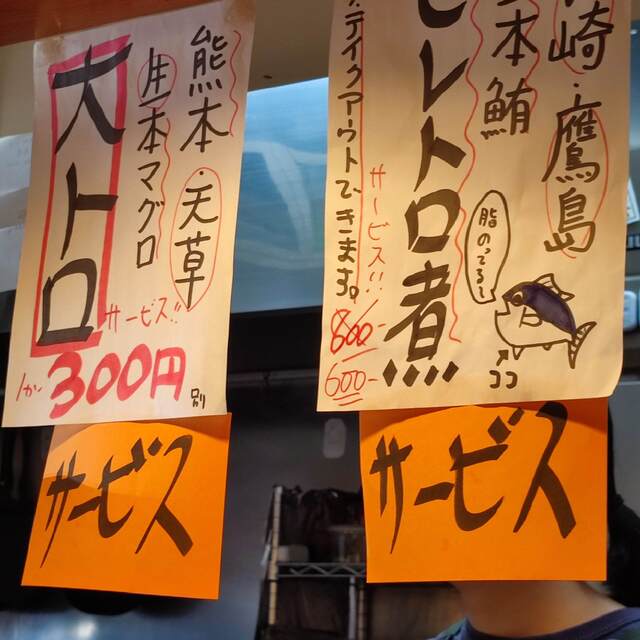 熊本・天草
生本マグロ
大トロ
サービス!!
1か 300円
別
サービス
崎・鷹島
本鮪
ヒレトロ煮
脂のってる〜
ココ
サービス!!
800-
600-
テイクアウトできます。
サービス